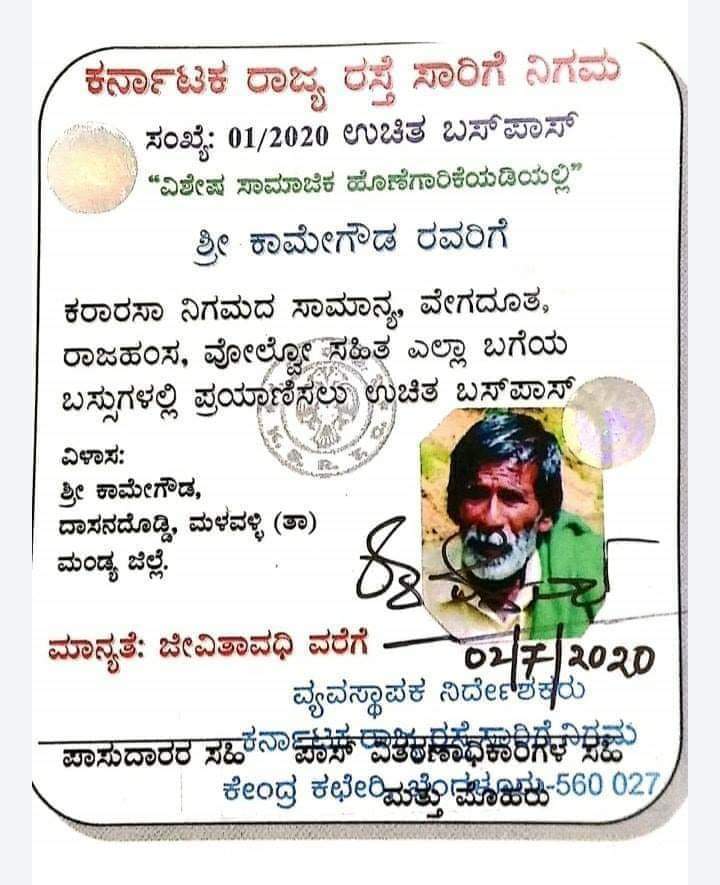 ಕರ್ನಾಟಕ ರಾಜ್ಯ ರಸ್ತೆ ಸಾರಿಗೆ ನಿಗಮ
ಸಂಖ್ಯೆ: 01/2020 ಉಚಿತ ಬಸ್‌ಪಾಸ್
“ವಿಶೇಷ ಸಾಮಾಜಿಕ ಹೊಣೆಗಾರಿಕೆಯಡಿಯಲ್ಲಿ”
ಶ್ರೀ ಕಾಮೇಗೌಡ ರವರಿಗೆ
ಕರಾರಸಾ ನಿಗಮದ ಸಾಮಾನ್ಯ, ವೇಗದೂತ,
ರಾಜಹಂಸ, ವೋಲ್ವೋ ಸಹಿತ ಎಲ್ಲಾ ಬಗೆಯ
ಬಸ್ಸುಗಳಲ್ಲಿ ಪ್ರಯಾಣಿಸಲು ಉಚಿತ ಬಸ್‌ಪಾಸ್
K.S.R.T.C.
ವಿಳಾಸ:
ಶ್ರೀ ಕಾಮೇಗೌಡ,
ದಾಸನದೊಡ್ಡಿ, ಮಳವಳ್ಳಿ (ತಾ)
ಮಂಡ್ಯ ಜಿಲ್ಲೆ.
ಮಾನ್ಯತೆ: ಜೀವಿತಾವಧಿ ವರೆಗೆ
02/7/2020
ವ್ಯವಸ್ಥಾಪಕ ನಿರ್ದೇಶಕರು
ಕರ್ನಾಟಕ ರಾಜ್ಯ ರಸ್ತೆ ಸಾರಿಗೆ ನಿಗಮ
ಪಾಸುದಾರರ ಸಹಿ ಪಾಸ್ ವಿತರಣಾಧಿಕಾರಿಗಳ ಸಹಿ
ಕೇಂದ್ರ ಕಛೇರಿ, ಬೆಂಗಳೂರು-560 027
ಮತ್ತು ಮೊಹರು